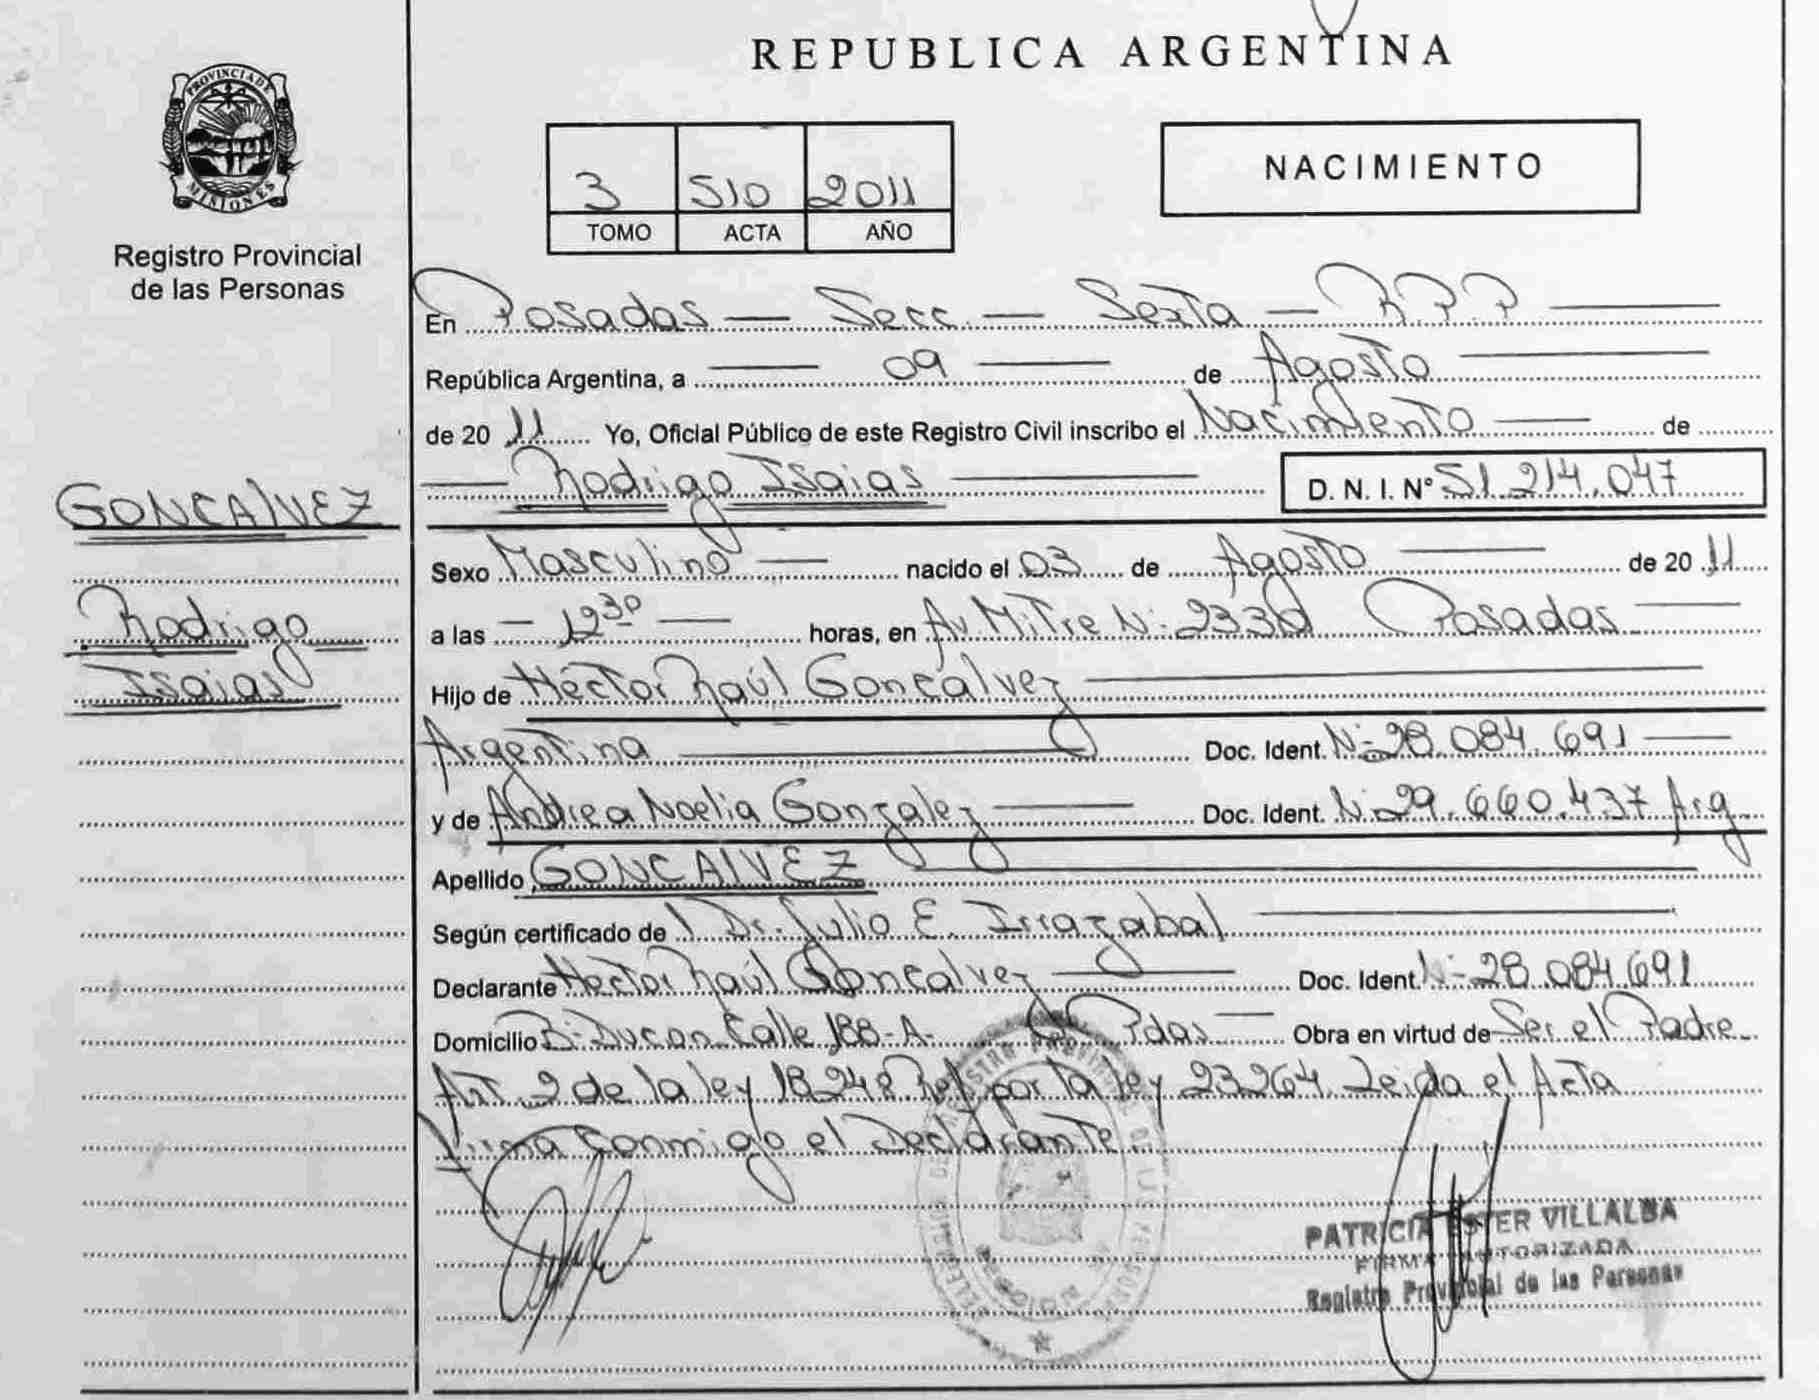 REPUBLICA ARGENTINA
PROVINCIA DE
MISIONES
Registro Provincial
de las Personas
3 510 2011
TOMO ACTA AÑO
NACIMIENTO
En Posadas — Secc. — Sexta — R.P.P —
República Argentina, a — 09 — de Agosto —
de 2011 Yo, Oficial Público de este Registro Civil inscribo el Nacimiento — de
— Rodrigo Isaias — D. N. I. N° 51.214.047
GONCALVEZ
Rodrigo
Isaias
Sexo Masculino — nacido el 03 de Agosto — de 2011
a las — 12 30 — horas, en Av Mitre N: 2330 Posadas —
Hijo de Héctor Raúl Goncalvez —
Argentina — Doc. Ident. N: 28.084.691 —
y de Andrea Noelia Gonzalez — Doc. Ident. N: 29.660.437 Arg
Apellido GONCALVEZ —
Según certificado de Dr. Julio E. Irrazabal —
Declarante Hector Raúl Goncalvez — Doc. Ident. N: 28.084.691
Domicilio Calle 188-A- Pdas — Obra en virtud de Ser el Padre
Art. 2 de la ley 18248 Ref por la ley 23264. Leida el Acta
Firma Conmigo el Declarante
PATRICIA ESTER VILLALBA
FIRMA AUTORIZADA
Registro Provincial de las Personas